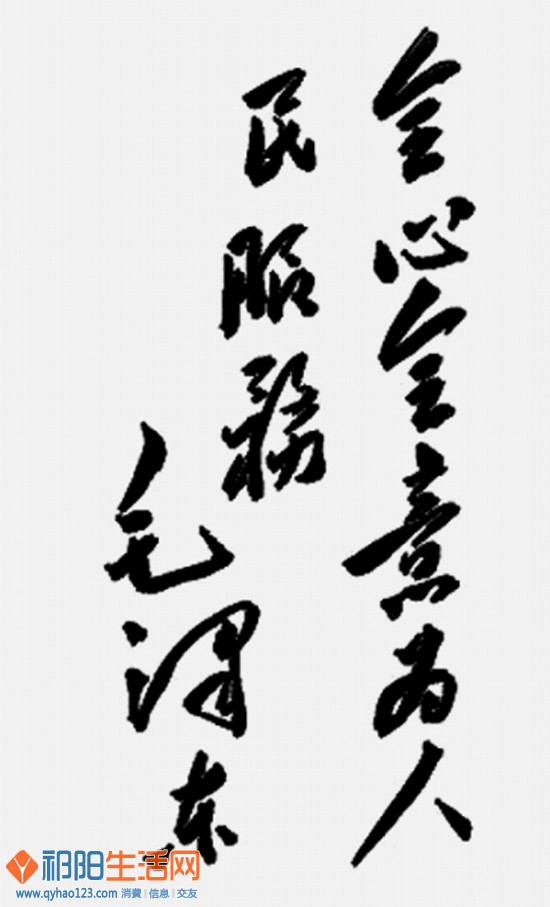 全心全意为人
民服務
毛泽东
祁阳生活网
www.qyhao123.com 消費|信息|交友